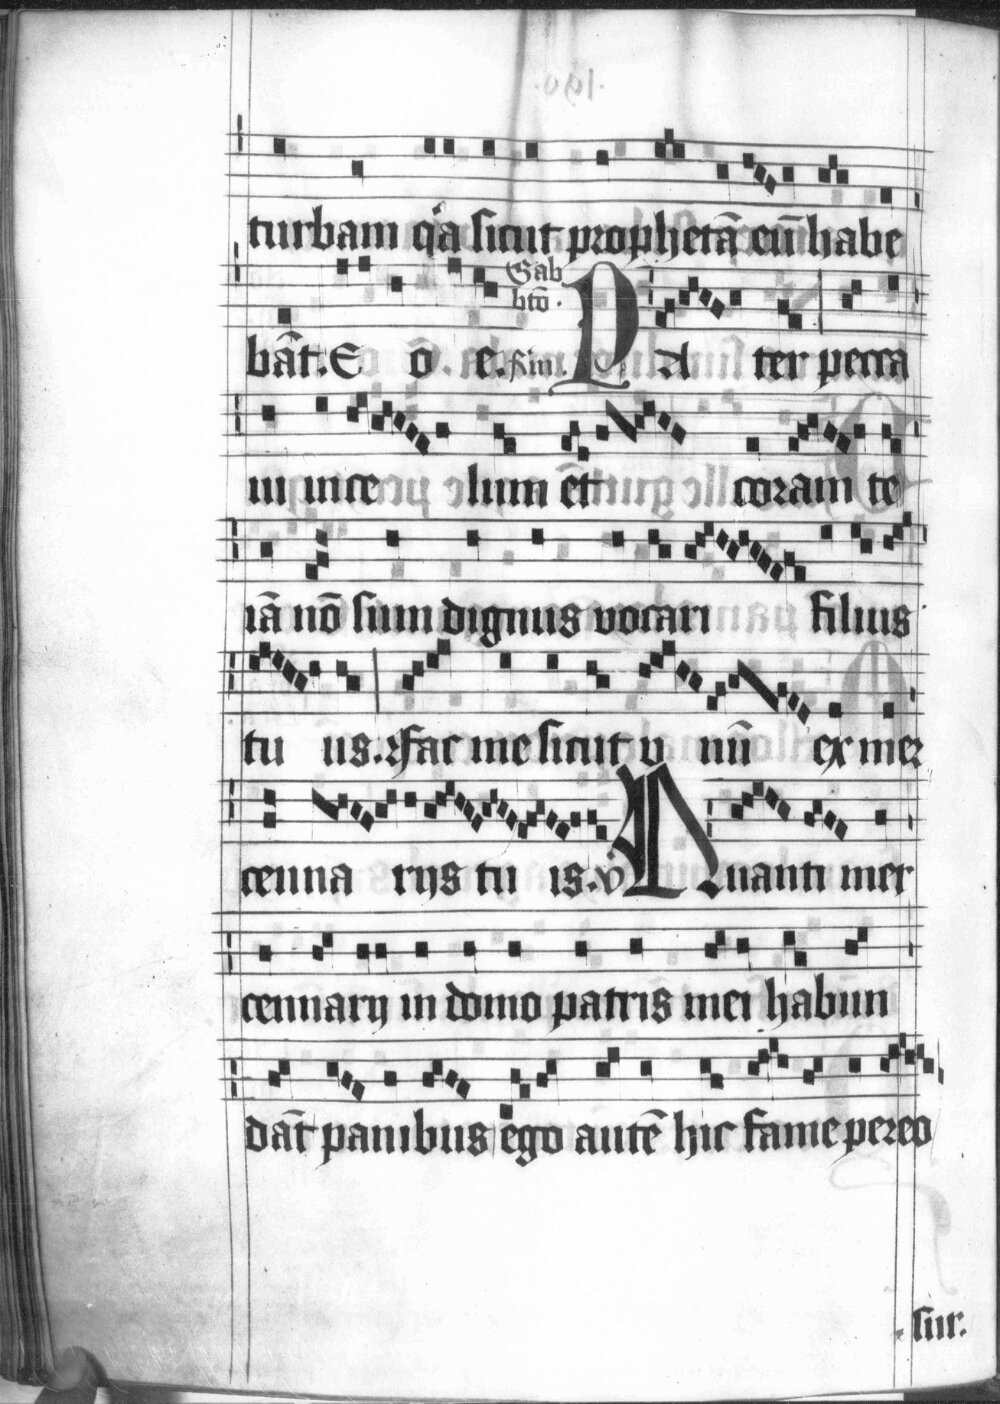 turbam q'a sicut prophetā eū habe
Sab
bto ·
bāt. E o e. PA ter pecca
ui in ce lum et coram te
iā nō sum dignus vocari filius
tu us. Fac me sicut v nū ex mer
cenna rijs tu is. v Quanti mer
cennarij in domo patris mei habun
dāt panibus ego autē hic fame pereo
sur.